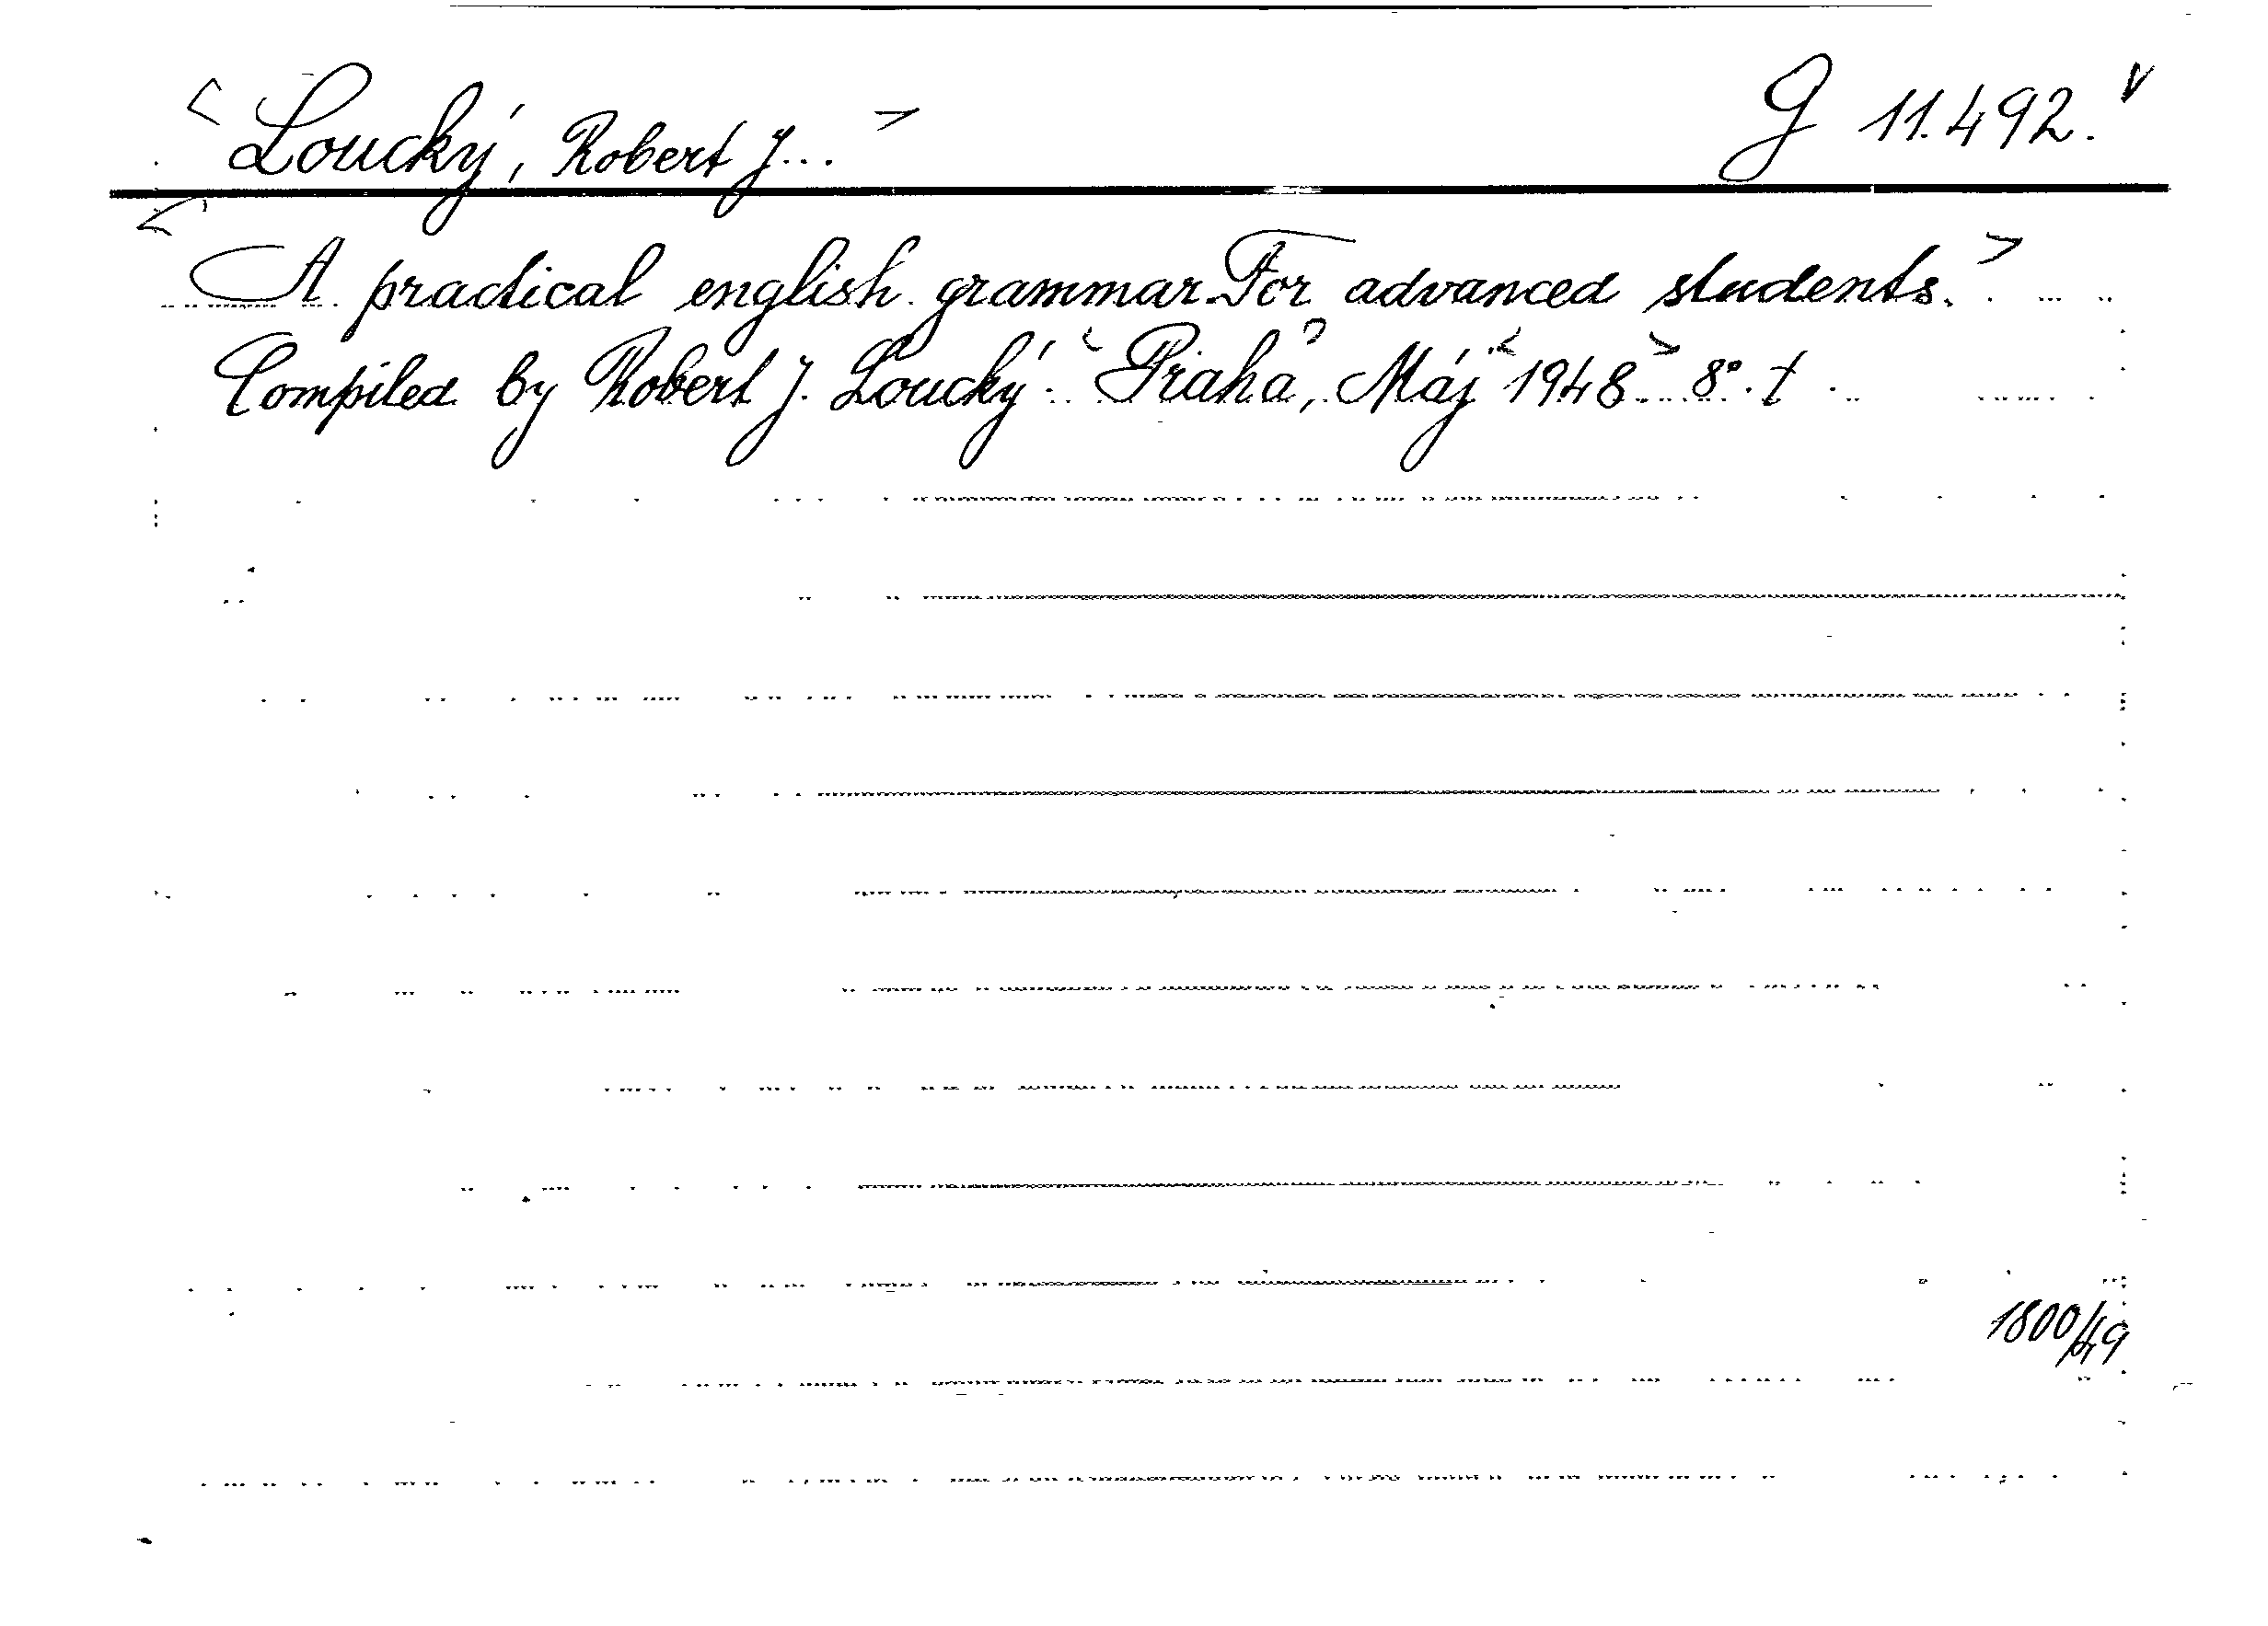 <Loucký, Robert J...> G 11.492.
<A practical english grammar. For advanced students.>
Compiled by Robert J. Loucký. <Praha>, Máj <1948> 8°. t.
1800/49